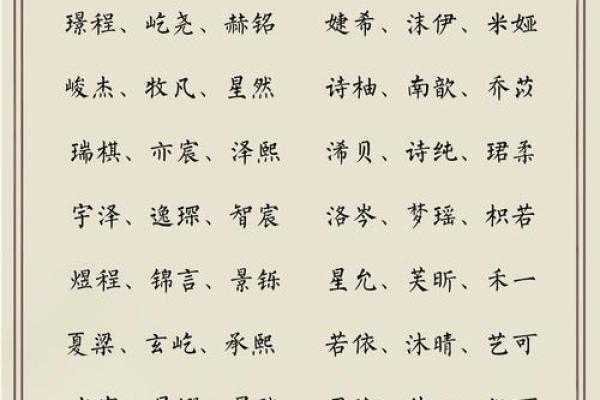 璟程、屹尧、赫铭　　婕希、沫伊、米娅
峻杰、牧凡、星然　　诗柚、南歆、乔苡
瑞棋、亦宸、泽熙　　浠贝、诗纯、珺柔
宇泽、逸琛、智宸　　洛岑、梦瑶、枳若
煜程、锦言、景铄　　星允、芙昕、禾一
夏梁、玄屹、承熙　　若依、沐晴、艺可